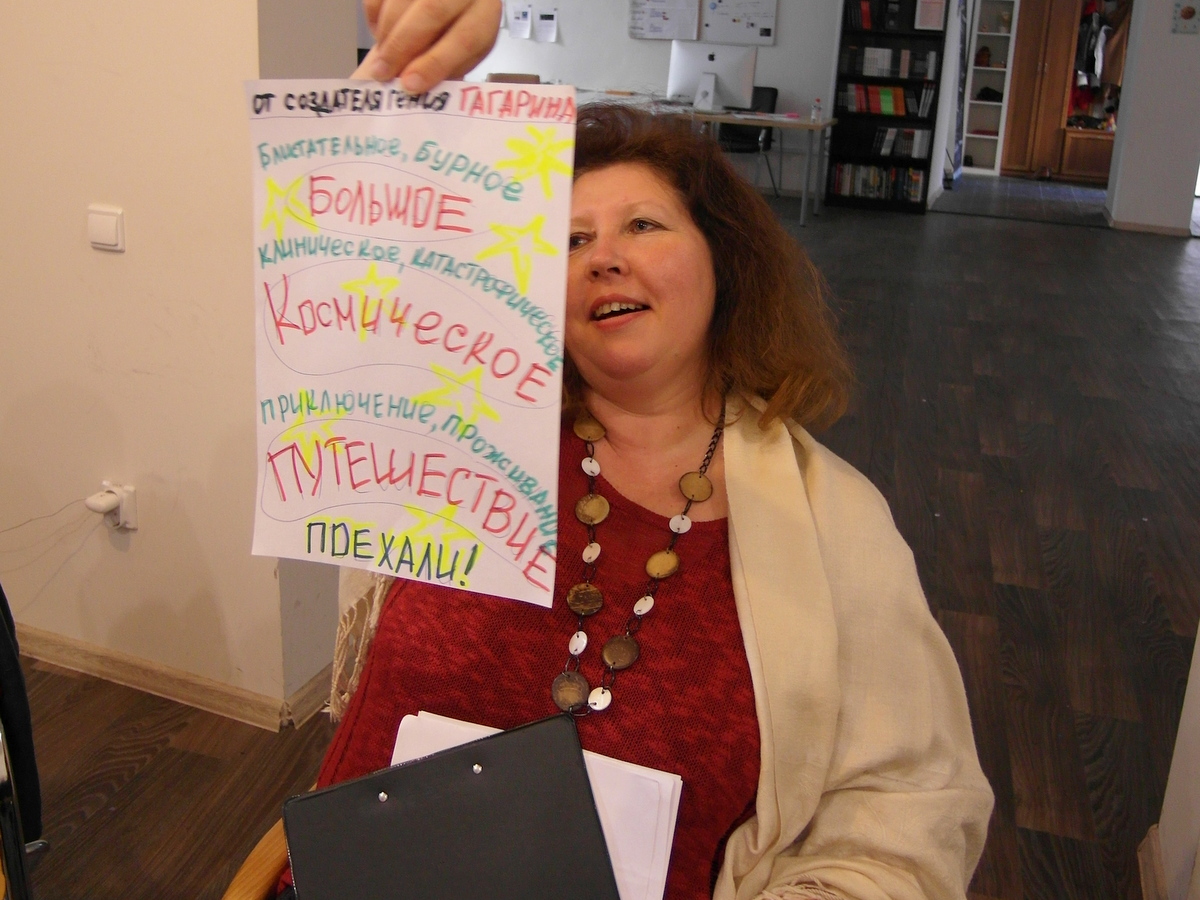 от создателя гения ГАГАРИНА
Блистательное, бурное
БОЛЬШОЕ
клиническое, катастрофическое
Космическое
приключение, проживание
ПУТЕШЕСТВИЕ
ПОЕХАЛИ!